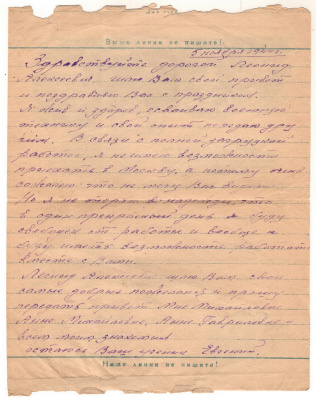 Выше линии не пишите!
5 ноября 194
Здравствуйте дорогой Леонид
Алексеевич, шлю Вам свой привет
и поздравляю Вас с праздником.
Я жив и здоров, осваиваю военную
технику и свой опыт передаю дру
гим. В связи с полной загрузкой
работы, я не имею возможности
приехать в Москву, а потому очень
сожалею что не могу Вас видеть.
Но я не теряю надежды, что
в один прекрасный день я буду
от работы и вообще и
буду иметь возможность работать
вместе с Вами.
Леонид Алексеевич шлю Вам свои
самые добрые пожелания и прошу
передать привет Михайловне
Анне Михайловне, Анне Гавриловне
всем моим знакомым
остаюсь Ваш ученик Евгений.
Ниже линии не пишите!